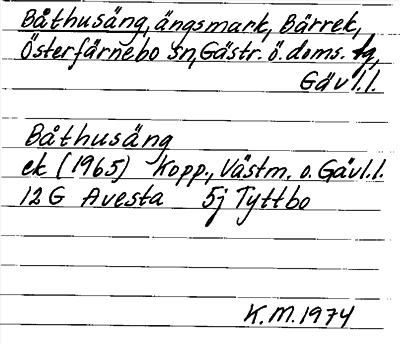 Båthusäng, ängsmark, Bärrek,
Österfärnebo sn, Gästr. ö. doms. tg,
Gävl.l.
Båthusäng
ek (1965) Kopp., Västm. o. Gävl.l.
12 G Avesta 5j Tyttbo
K.M. 1974